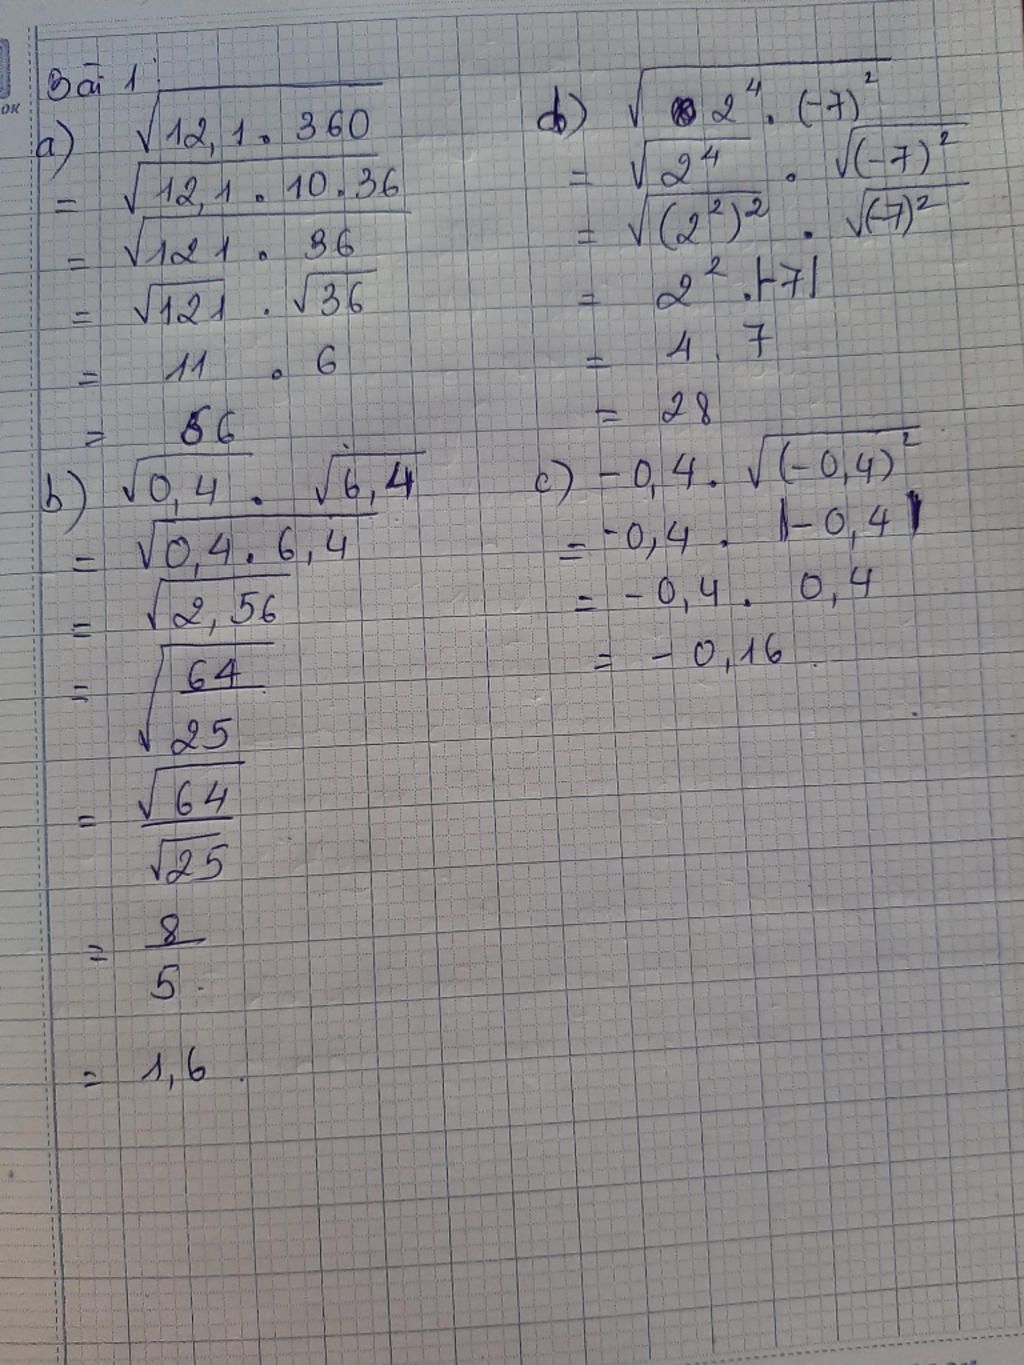 Bài 1
a) √12,1 . 360
= √12,1 . 10 . 36
= √121 . 36
= √121 . √36
= 11 . 6
= 66
b) √0,4 . √6,4
= √0,4 . 6,4
= √2,56
= √64/25
= √64/√25
= 8/5
= 1,6
d) √2⁴ . (-7)²
= √2⁴ . √(-7)²
= √(2²)² . √(-7)²
= 2² . |-7|
= 4 . 7
= 28
c) -0,4 . √(-0,4)²
= -0,4 . |-0,4|
= -0,4 . 0,4
= -0,16